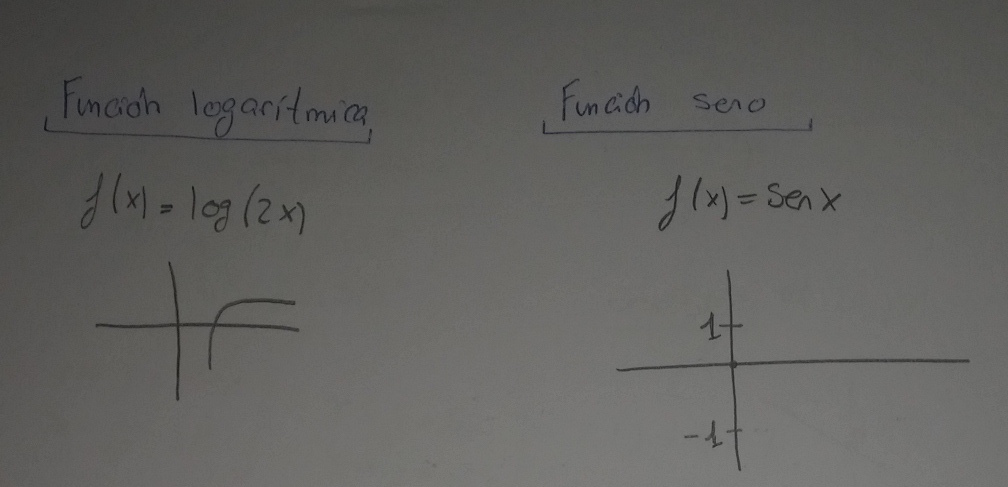 Función logarítmica
f(x) = log(2x)
Función seno
f(x) = sen x
1
-1